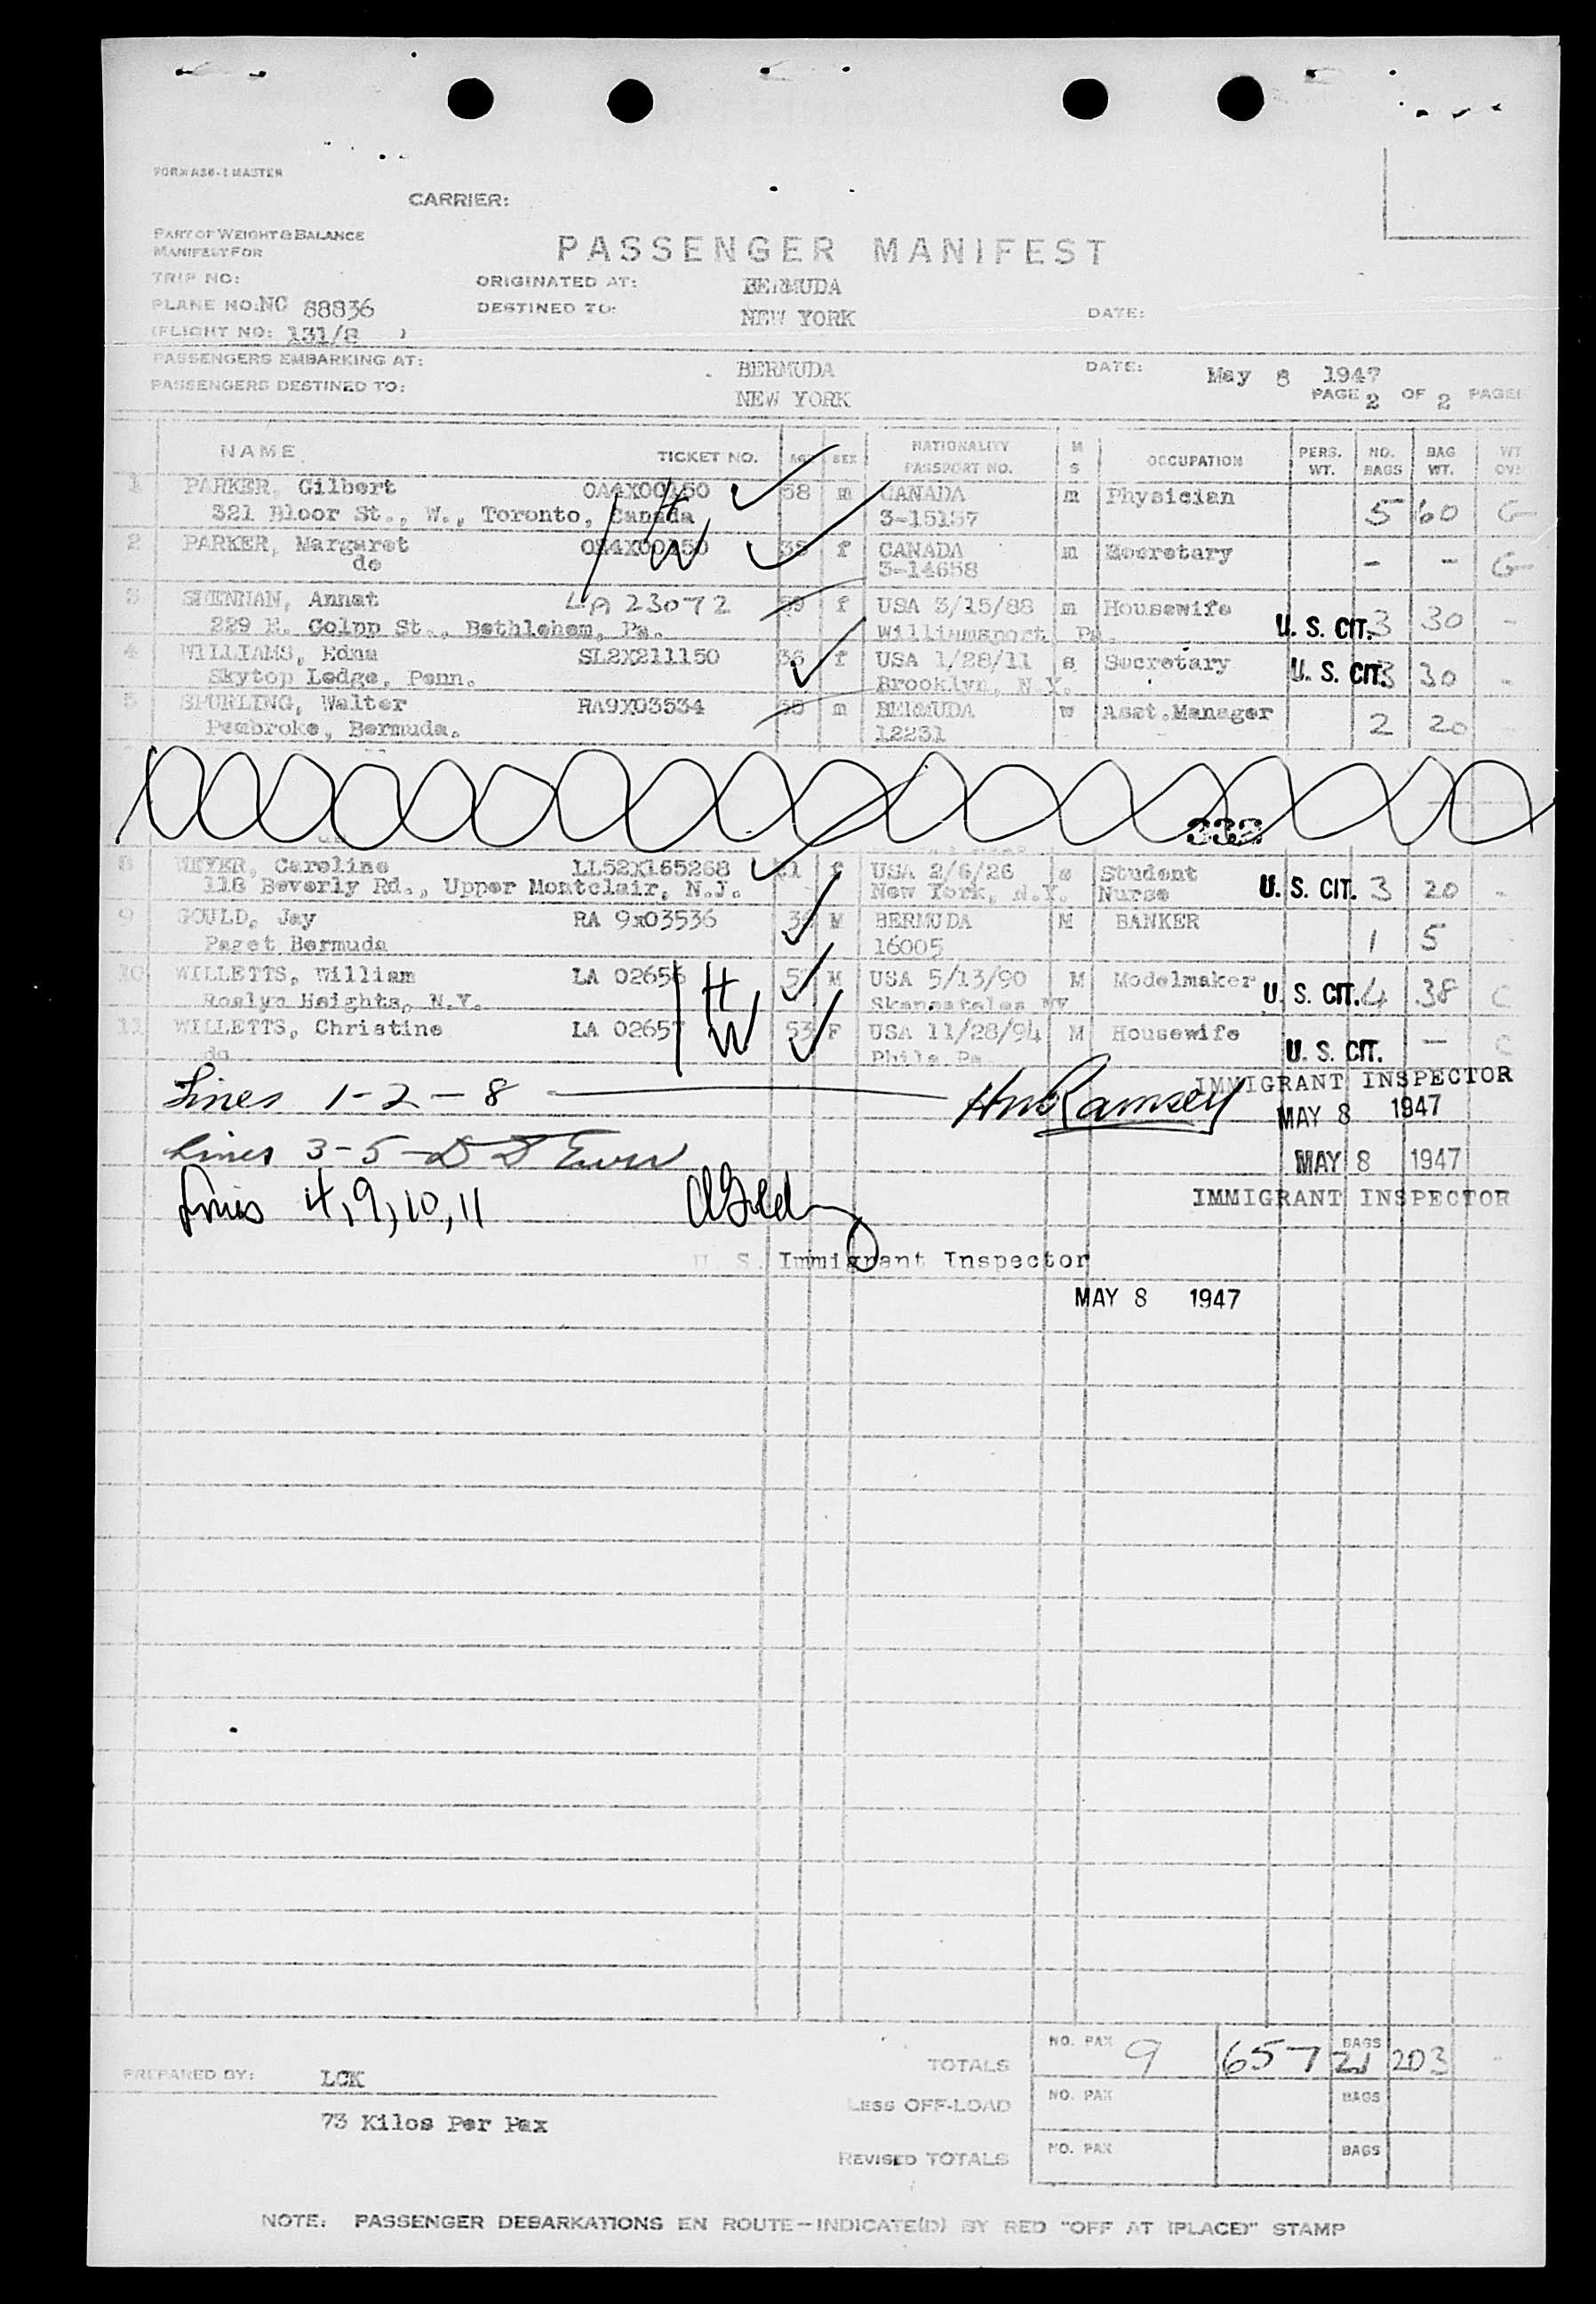 FORM A36-1 MASTER
CARRIER:
PART OF WEIGHT & BALANCE
MANIFEST FOR
PASSENGER MANIFEST
TRIP NO:
ORIGINATED AT: BERMUDA
PLANE NO: NC 88836
DESTINED TO: NEW YORK
DATE:
(FLIGHT NO: 131/8 )
PASSENGERS EMBARKING AT: BERMUDA
DATE: May 8 1947
PASSENGERS DESTINED TO: NEW YORK
PAGE 2 OF 2 PAGES
NAME TICKET NO. AGE SEX NATIONALITY PASSPORT NO. M S OCCUPATION PERS. WT. NO. BAGS BAG WT. WT
1 PARKER, Gilbert 58 m CANADA m Physician 5 60 G
321 Bloor St., W., Toronto, Canada 3-15157
2 PARKER, Margaret 35 f CANADA m Secretary - - G
do 3-14658
3 Annat LA 23072 59 f USA 3/15/88 m Housewife U. S. CIT. 3 30 -
229 E. St., Bethlehem, Pa. Williamsport Pa.
4 WILLIAMS, Edna SL2X211150 36 f USA 1/28/11 s Secretary U. S. CIT. 3 30 -
Skytop Lodge, Penn. Brooklyn, N.Y.
5 SPURLING, Walter RA9X03534 m BERMUDA w Asst. Manager 2 20
Pembroke, Bermuda. 12231
332
8 Caroline LL52X165268 21 f USA 2/6/26 s Student U. S. CIT. 3 20 -
118 Beverly Rd., Upper Montclair, N.J. New York, N.Y. Nurse
9 GOULD, Jay RA 9x03536 M BERMUDA M BANKER 1 5
Paget Bermuda 16005
10 WILLETTS, William LA 02656 H M USA 5/13/90 M Modelmaker U. S. CIT. 4 38 C
Roslyn Heights, N.Y. Skaneateles NY
11 WILLETTS, Christine LA 02657 W 53 F USA 11/28/94 M Housewife U. S. CIT. — C
do Phila Pa.
Lines 1-2-8 Ramsey IMMIGRANT INSPECTOR
MAY 8 1947
Lines 3-5
MAY 8 1947
Lines 4, 9, 10, 11
IMMIGRANT INSPECTOR
U. S. Immigrant Inspector
MAY 8 1947
TOTALS NO. PAX 9 657 BAGS 21 203 -
PREPARED BY: LCK
LESS OFF-LOAD NO. PAX BAGS
73 Kilos Per Pax
REVISED TOTALS NO. PAX BAGS
NOTE: PASSENGER DEBARKATIONS EN ROUTE—INDICATE(D) BY RED "OFF AT (PLACE)" STAMP